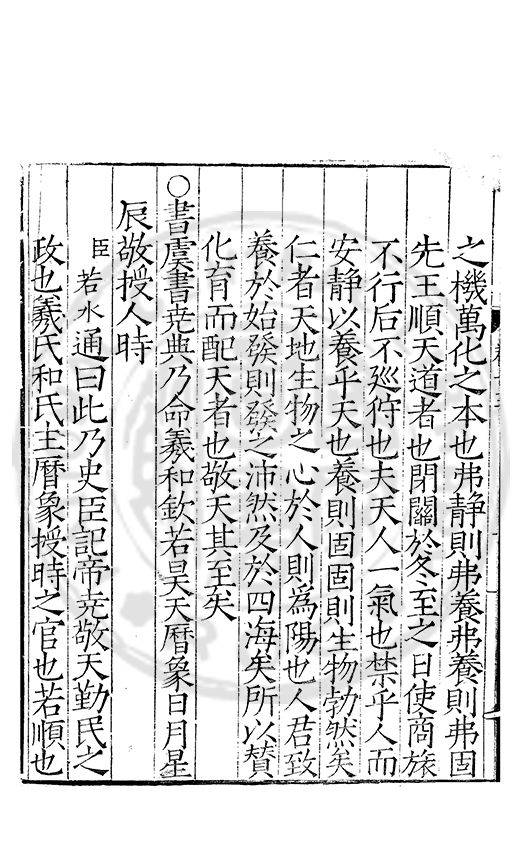 之機萬化之本也弗静則弗養弗養則弗固
先王順天道者也閉關於冬至之日使商旅
不行后不廵狩也夫天人一氣也禁乎人而
安静以養乎天也養則固固則生物勃然矣
仁者天地生物之心於人則為陽也人君致
養於始發則發之沛然及於四海矣所以賛
化育而配天者也敬天其至矣
○書虞書尭典乃命羲和欽若昊天曆象日月星
辰敬授人時
臣若水通曰此乃史臣記帝尭敬天勤民之
政也羲氏和氏主曆象授時之官也若順也